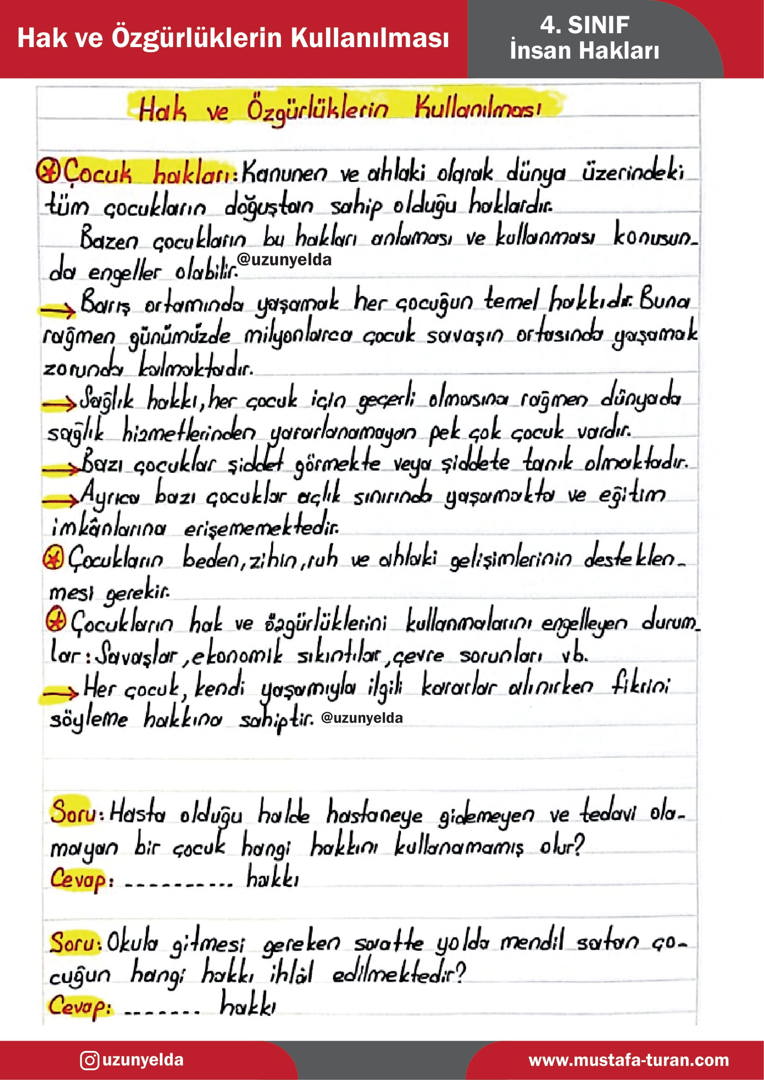 Hak ve Özgürlüklerin Kullanılması
4. SINIF
İnsan Hakları
Hak ve Özgürlüklerin Kullanılması
Çocuk hakları: Kanunen ve ahlaki olarak dünya üzerindeki
tüm çocukların doğuştan sahip olduğu haklardır.
Bazen çocukların bu hakları anlaması ve kullanması konusun-
da engeller olabilir. @uzunyelda
→ Barış ortamında yaşamak her çocuğun temel hakkıdır. Buna
rağmen günümüzde milyonlarca çocuk savaşın ortasında yaşamak
zorunda kalmaktadır.
→ Sağlık hakkı, her çocuk için geçerli olmasına rağmen dünyada
sağlık hizmetlerinden yararlanamayan pek çok çocuk vardır.
→ Bazı çocuklar şiddet görmekte veya şiddete tanık olmaktadır.
→ Ayrıca bazı çocuklar açlık sınırında yaşamakta ve eğitim
imkânlarına erişememektedir.
Çocukların beden, zihin, ruh ve ahlaki gelişimlerinin desteklen-
mesi gerekir.
Çocukların hak ve özgürlüklerini kullanmalarını engelleyen durum-
lar: Savaşlar, ekonomik sıkıntılar, çevre sorunları vb.
→ Her çocuk, kendi yaşamıyla ilgili kararlar alınırken fikrini
söyleme hakkına sahiptir. @uzunyelda
Soru: Hasta olduğu halde hastaneye gidemeyen ve tedavi ola-
mayan bir çocuk hangi hakkını kullanamamış olur?
Cevap: ---------- hakkı
Soru: Okula gitmesi gereken saatte yolda mendil satan ço-
cuğun hangi hakkı ihlâl edilmektedir?
Cevap: ------- hakkı
uzunyelda
www.mustafa-turan.com